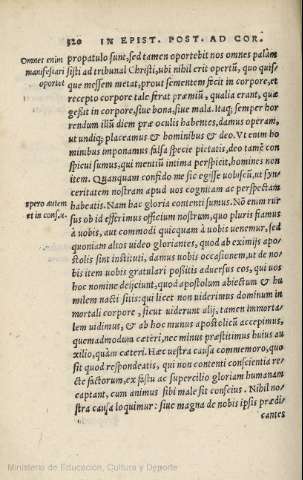 320 IN EPIST. POST. AD COR.
Omnes enim
manifestari
oportet
propatulo sunt, sed tamen oportebit nos omnes palàm
sisti ad tribunal Christi, ubi nihil erit opertũ, quo quisq;
que messem metat, prout sementem fecit in corpore, et
recepto corpore tale ferat præmiũ, qualia erant, quæ
gessit in corpore, siue bona, siue mala. Itaq; semper hor
rendum illũ diem præ oculis habentes, damus operam,
ut undiq; placeamus & hominibus & deo. Vt enim ho
minibus imponamus falsa specie pietatis, deo tamẽ con
spicui sumus, qui mentiũ intima perspicit, homines non
item. Quanquam confido me sic egisse uobiscũ, ut syn-
ceritatem nostram apud uos cogniam ac perspectam
spero autem
et in consci.
habeatis. Nam hac gloria contenti sumus. Nõ enim rur
sus ob id efferimus officium nostrum, quo pluris fiamus
à uobis, aut commodi quicquam à uobis uenemur, sed
quoniam altos uideo gloriantes, quod ab eximijs apo-
stolis sint instituti, damus uobis occasionem, ut de no-
bis item uobis gratulari possitis aduersus eos, qui uos
hoc nomine dejiciunt, quod apostolum abiectum & hu
milem nacti sitis: qui licet non uiderimus dominum in
mortali corpore, sicut uiderunt alij, tamen immorta-
lem uidimus, & ab hoc munus apostolicũ accepimus,
quemadmodum cæteri, nec minus præstitimus huius au
xilio, quàm cæteri. Hæc uestra causa commemoro, quo
sit quod respondeatis, qui non contenti conscientia re-
ctè factorum, ex fastu ac supercilio gloriam humanam
captant, cum animus sibi male sit conscius. Nihil no-
stra causa loquimur: siue magna de nobis ipsis prædi
cantes
Ministerio de Educación, Cultura y Deporte